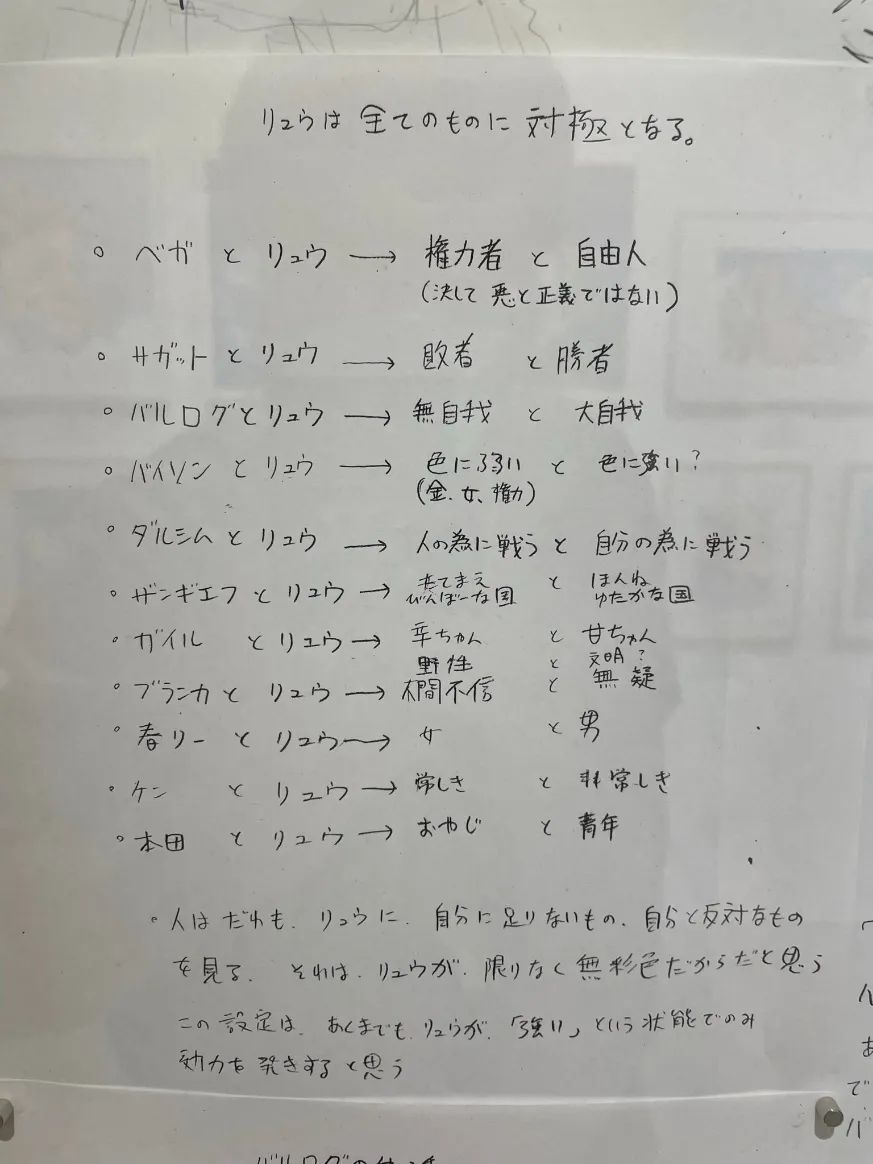 リュウは全てのものに対極となる。
。ベガとリュウ→権力者と自由人
(決して悪と正義ではない)
。サガットとリュウ→敗者と勝者
。バルログとリュウ→無自我と大自我
。バイソンとリュウ→色に弱い と 色に強い?
(金、女、権力)
。ダルシムとリュウ→人の為に戦う と 自分の為に戦う
。ザンギエフとリュウ→たてまえ と ほんね
びんぼーな国 ゆたかな国
。ガイル とリュウ→辛ちゃん と 甘ちゃん
野性 と 文明?
。ブランカとリュウ→人間不信 と 無疑
。春リーとリュウ→女 と 男
。ケン とリュウ→常しき と 非常しき
。本田 とリュウ→おやじ と 青年
。人はだれも、リュウに、自分に足りないもの、自分と反対なもの
を見る、それは、リュウが、限りなく無彩色だからだと思う
この設定は、あくまでも、リュウが、「強い」という状態でのみ
効力を発きすると思う